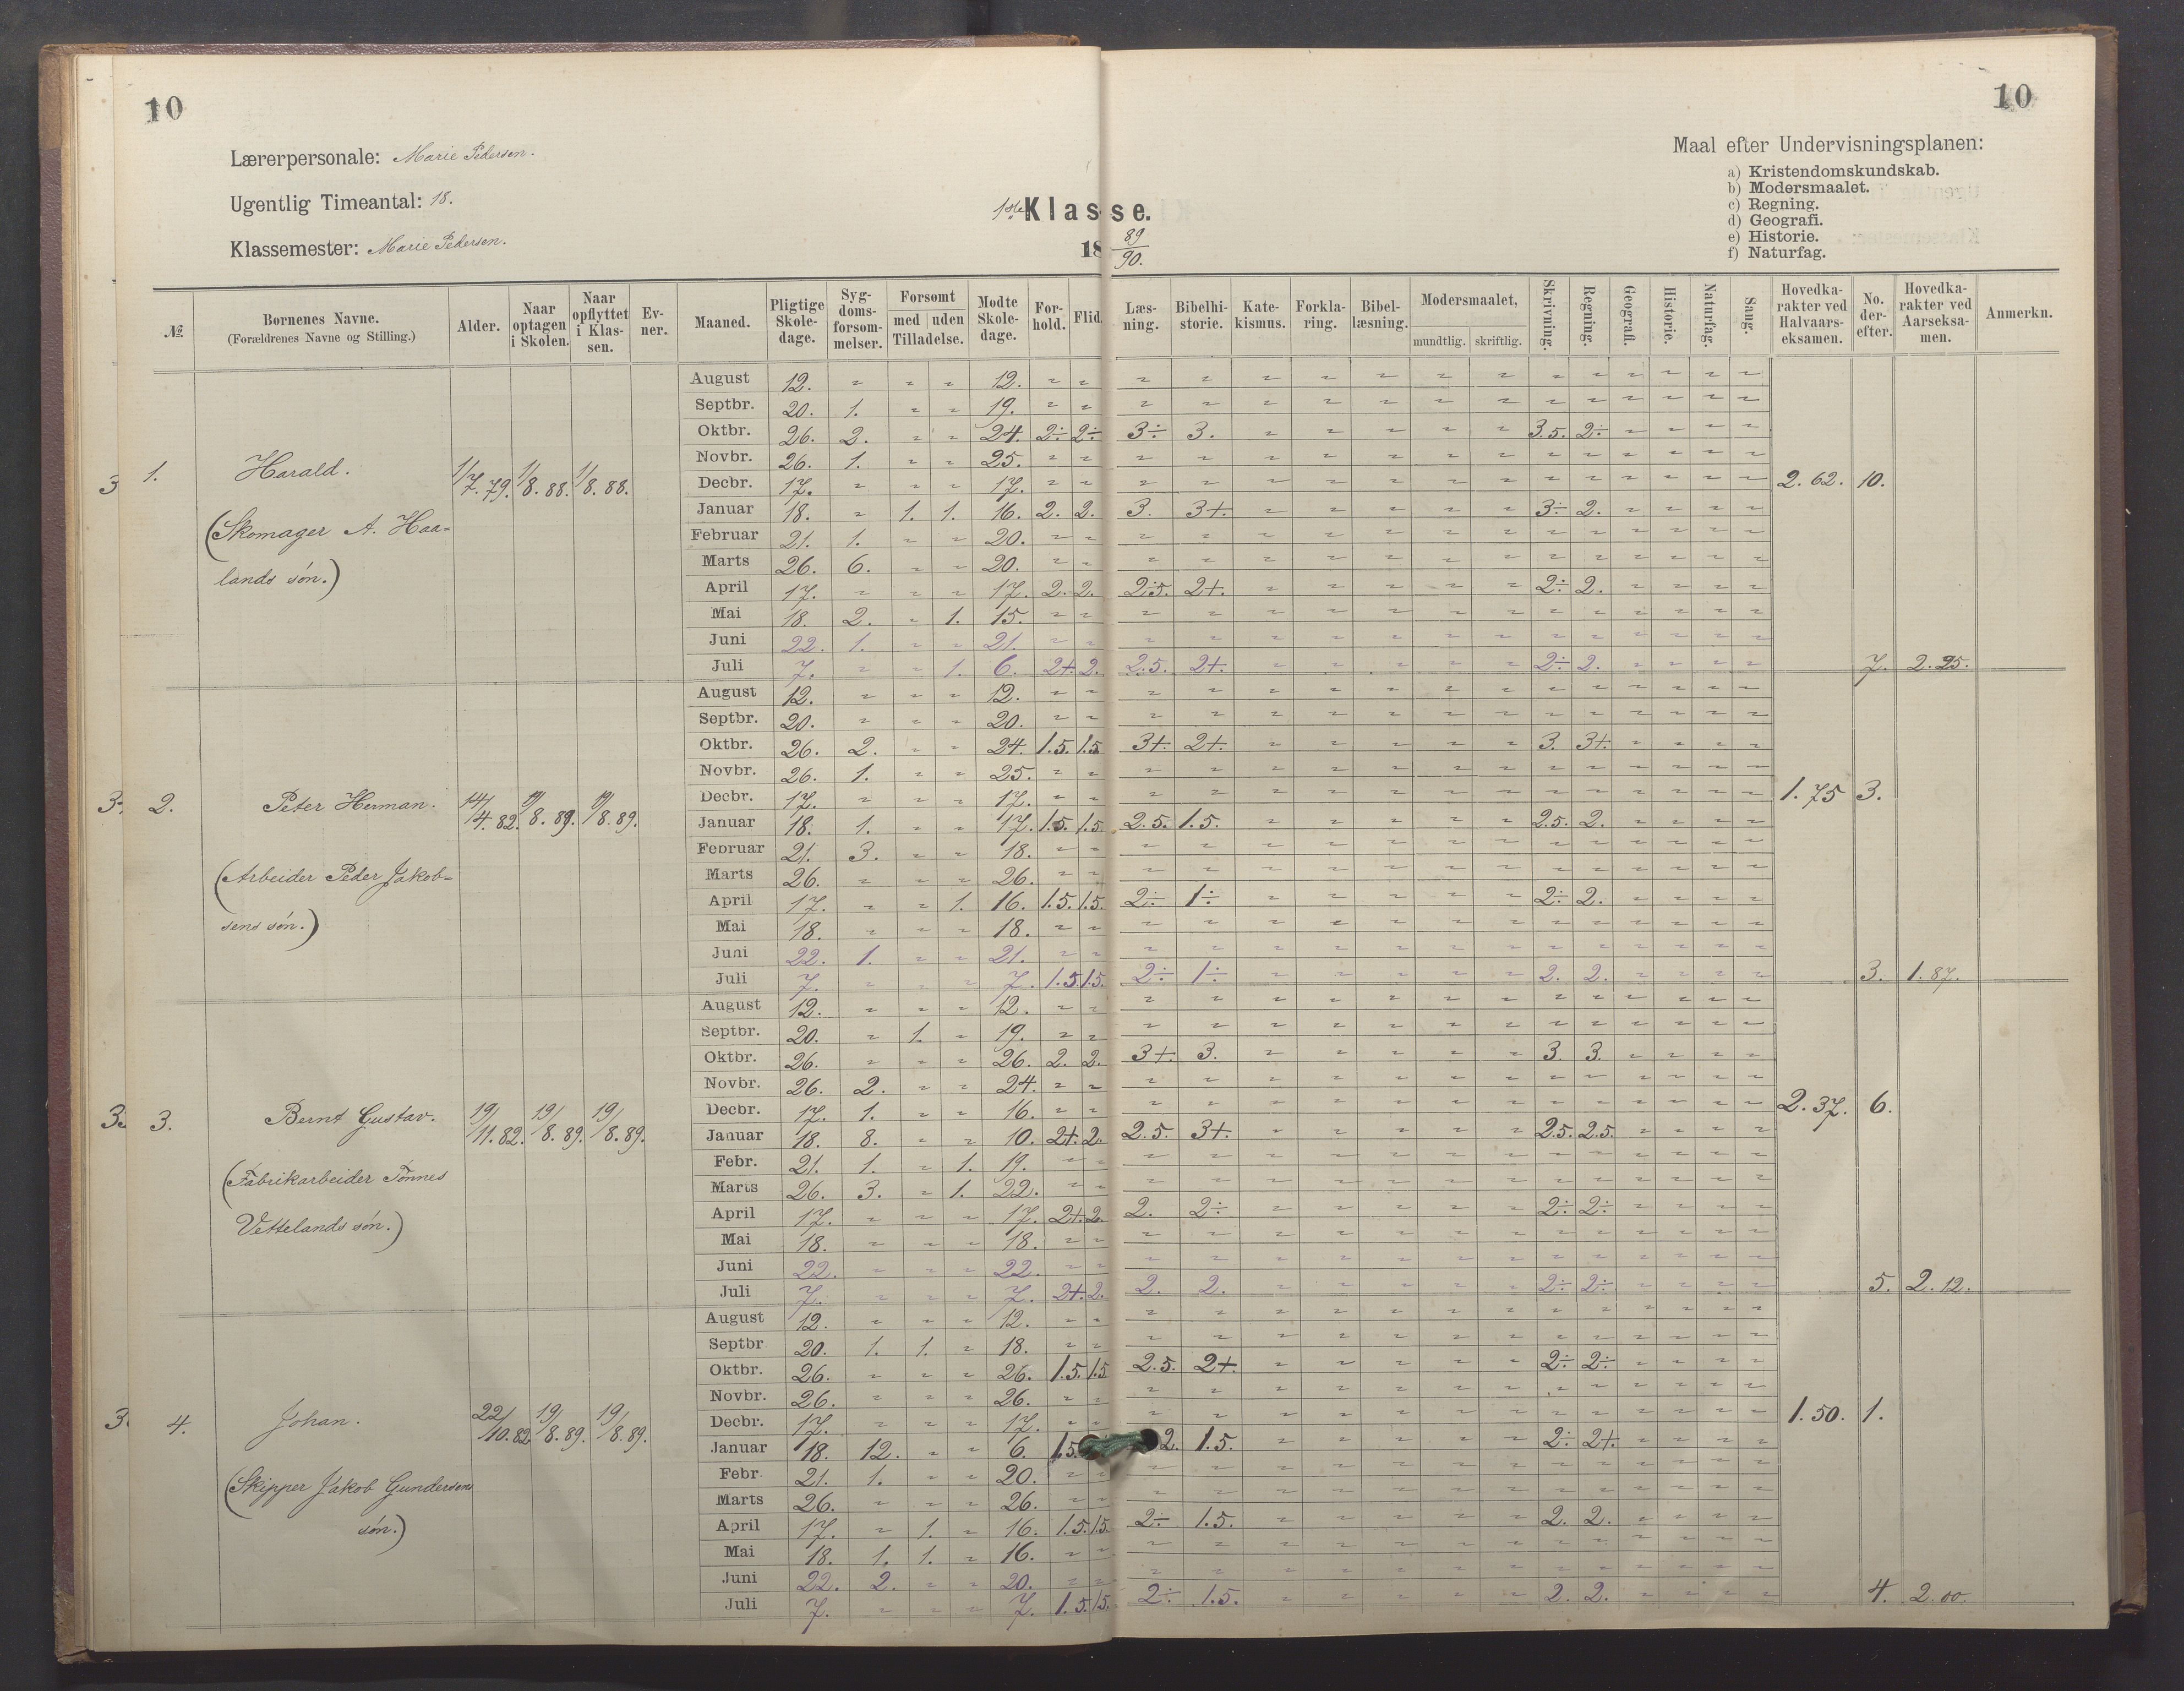 10
10
Lærerpersonale: Marie Pedersen.
Ugentlig Timeantal: 18.
Klassemester: Marie Pedersen.
1ste Klasse.
18 89/90.
Maal efter Undervisningsplanen:
a) Kristendomskundskab.
b) Modersmaalet.
c) Regning.
d) Geografi.
e) Historie.
f) Naturfag.
№ | Børnenes Navne. (Forældrenes Navne og Stilling.) | Alder. | Naar optagen i Skolen. | Naar opflyttet i Klassen. | Evner. | Maaned. | Pligtige Skoledage. | Sygdomsforsømmelser. | Forsømt med / uden Tilladelse. | Mødte Skoledage. | Forhold. | Flid. | Læsning. | Bibelhistorie. | Katekismus. | Forklaring. | Bibellæsning. | Modersmaalet, mundtlig. skriftlig. | Skrivning. | Regning. | Geografi. | Historie. | Naturfag. | Sang. | Hovedkarakter ved Halvaarseksamen. | No. derefter. | Hovedkarakter ved Aarseksamen. | Anmerkn.
1. Harald. 1/7. 79. 1/8. 88. 1/8. 88. 2. 62. 10.
(Skomager A. Haa=
lands søn.)
August 12. " " " 12. " " " " " " " " " " " " " " "
Septbr. 20. 1. " " 19. " " " " " " " " " " " " " " "
Oktbr. 26. 2. " " 24. 2÷ 2÷ 3÷ 3. " " " " " 3.5. 2÷ " " " "
Novbr. 26. 1. " " 25. " " " " " " " " " " " " " " "
Decbr. 17. " " " 17. " " " " " " " " " " " " " " "
Januar 18. " 1. 1. 16. 2. 2. 3. 3+. " " " " " 3÷ 2. " " " "
Februar 21. 1. " " 20. " " " " " " " " " " " " " " "
Marts 26. 6. " " 20. " " " " " " " " " " " " " " "
April 17. " " " 17. 2. 2. 2.5. 2+. " " " " " 2÷ 2. " " " "
Mai 18. 2. " 1. 15. " " " " " " " " " " " " " " "
Juni 22. 1. " " 21. " " " " " " " " " " " " " " "
Juli 7. " " 1. 6. 2+. 2. 2.5. 2+. " " " " " 2÷ 2. " " " " 7. 2. 25.
2. Peter Herman. 14/4. 82. 19/8. 89. 19/8. 89. 1. 75 3.
(Arbeider Peder Jakob=
sens søn.)
August 12. " " " 12. " " " " " " " " " " " " " " "
Septbr. 20. " " " 20. " " " " " " " " " " " " " " "
Oktbr. 26. 2. " " 24. 1.5. 1.5. 3+. 2+. " " " " " 3. 3+. " " " "
Novbr. 26. 1. " " 25. " " " " " " " " " " " " " " "
Decbr. 17. " " " 17. " " " " " " " " " " " " " " "
Januar 18. 1. " " 17. 1.5. 1.5. 2.5. 1.5. " " " " " 2.5. 2. " " " "
Februar 21. 3. " " 18. " " " " " " " " " " " " " " "
Marts 26. " " " 26. " " " " " " " " " " " " " " "
April 17. " " 1. 16. 1.5. 1.5. 2÷ 1÷ " " " " " 2÷ 2. " " " "
Mai 18. " " " 18. " " " " " " " " " " " " " " "
Juni 22. 1. " " 21. " " " " " " " " " " " " " " "
Juli 7. " " " 7. 1.5. 1.5. 2÷ 1÷ " " " " " 2. 2. " " " " 3. 1. 87.
3. Bernt Gustav. 19/11. 82. 19/8. 89. 19/8. 89. 2. 37. 6.
(Fabrikarbeider Tønnes
Vettelands søn.)
August 12. " " " 12. " " " " " " " " " " " " " " "
Septbr. 20. " 1. " 19. " " " " " " " " " " " " " " "
Oktbr. 26. " " " 26. 2. 2. 3+. 3. " " " " " 3. 3. " " " "
Novbr. 26. 2. " " 24. " " " " " " " " " " " " " " "
Decbr. 17. 1. " " 16. " " " " " " " " " " " " " " "
Januar 18. 8. " " 10. 2+. 2. 2.5. 3+. " " " " " 2.5. 2.5. " " " "
Febr. 21. 1. " 1. 19. " " " " " " " " " " " " " " "
Marts 26. 3. " 1. 22. " " " " " " " " " " " " " " "
April 17. " " " 17. 2+. 2. 2. 2÷ " " " " " 2÷ 2÷ " " " "
Mai 18. " " " 18. " " " " " " " " " " " " " " "
Juni 22. " " " 22. " " " " " " " " " " " " " " "
Juli 7. " " " 7. 2+. 2. 2. 2. " " " " " 2÷ 2÷ " " " " 5. 2. 12.
4. Johan. 22/10. 82. 19/8. 89. 19/8. 89. 1. 50. 1.
(Skipper Jakob Gundersens
søn.)
August 12. " " " 12. " " " " " " " " " " " " " " "
Septbr 20. 1. 1. " 18. " " " " " " " " " " " " " " "
Oktbr. 26. " " " 26. 1.5. 1.5. 2.5. 2+. " " " " " 2÷ 2÷ " " " "
Novbr. 26. " " " 26. " " " " " " " " " " " " " " "
Decbr. 17. " " " 17. " " " " " " " " " " " " " " "
Januar 18. 12. " " 6. 1.5. 2. 1.5. " " " " " 2÷ 2+. " " " "
Febr 21. 1. " " 20. " " " " " " " " " " " " " " "
Marts 26. " " " 26. " " " " " " " " " " " " " " "
April 17. " 1. " 16. 1.5. 1.5. 2÷ 1.5. " " " " " 2. 2. " " " "
Mai 18. 1. 1. " 16. " " " " " " " " " " " " " " "
Juni 22. 2. " " 20. " " " " " " " " " " " " " " "
Juli 7. " " " 7. 1.5. 1.5. 2÷ 1.5. " " " " " 2. 2. " " " " 4. 2. 00.